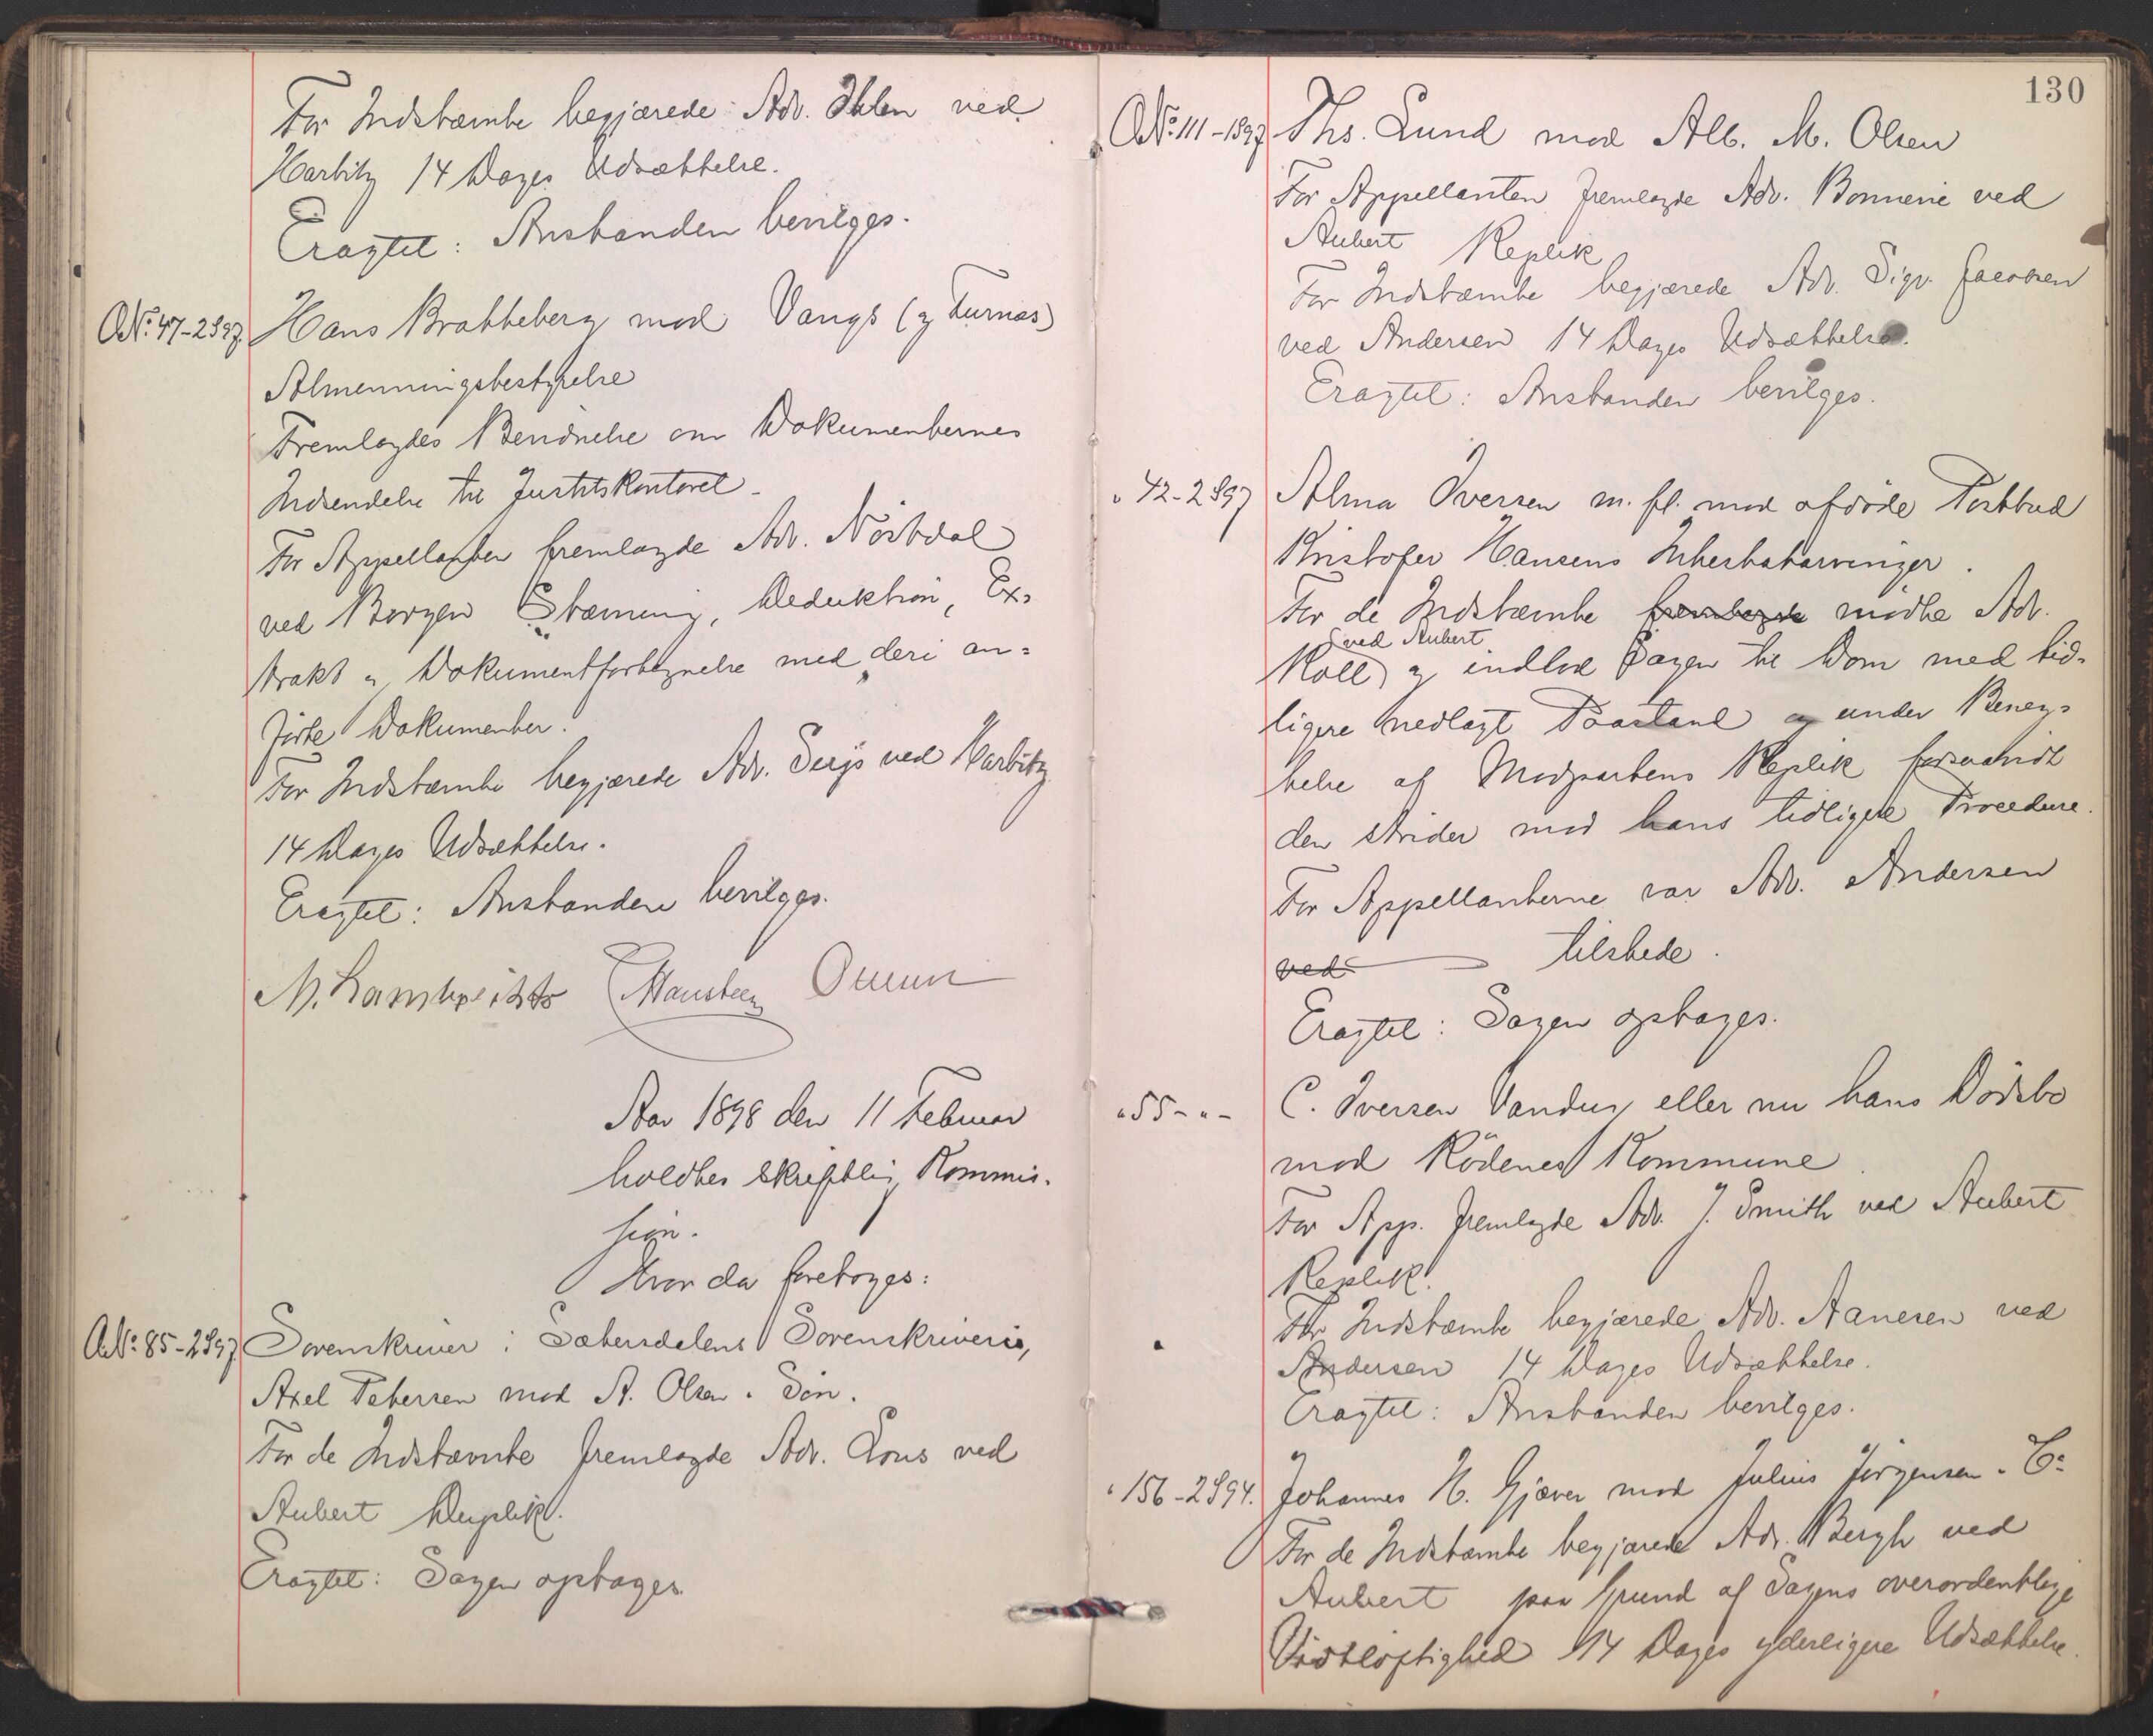 For Indstævnte begjærede Adv. Ihlen ved
Harbitz 14 Dages Udsættelse.
Eragtet: Anstanden bevilges.
No. 47-2 97. Hans Bratteberg mod Vangs (og Furnæs)
Almenningsbestyrelse
Fremlagdes Bevidnelse om Dokumenternes
Indsendelse til Justitskontoret.
For Appellanten fremlagde Adv.
ved Borgen Stævning, Deduktion, Ex-
trakt og Dokumentfortegnelse med deri an-
førte Dokumenter.
For Indstævnte begjærede Adv. ved Harbitz
14 Dages Udsættelse.
Eragtet: Anstanden bevilges.
M. Lambrechts Hansteen
Aar 1898 den 11 Februar
holdtes skriftlig Kommis-
sion.
Hvor da foretoges:
No. 85-2 97. Sorenskriver i Sætersdalens Sorenskriveri,
Axel Petersen mod A. Olsen & Søn.
For de Indstævnte fremlagde Adv. Lous ved
Aubert Duplik.
Eragtet: Sagen optages
130
No. 111-1 97 Ths. Lund mod Alb. M. Olsen
For Appellanten fremlagde Adv. Bonnevie ved
Aubert Replik
For Indstævnte begjærede Adv. Sigv. Jacobsen
ved Andersen 14 Dages Udsættelse.
Eragtet: Anstanden bevilges.
" 42-2 97 Alma Iversen m. fl. mod afdøde Postbud
Kristofer Hansens Inhertatarvinger.
For de Indstævnte fremlagde mødte Adv.
ved Aubert
Koll og indlod Sagen til Dom med tid-
ligere nedlagt Paastand og under Beneg-
telse af Modpartens Replik forsaavidt
den strider mod hans tidligere Procedure.
For Appellanterne var Adv. Andersen
ved tilstede.
Eragtet: Sagen optages.
" 55 - " - C. Iversen Vandug eller nu hans Dødsbo
mod Rødenes Kommune
For App. fremlagde Adv. J. Smith ved Aubert
Replik.
For Indstævnte begjærede Adv. Aanesen ved
Andersen 14 Dages Udsættelse.
Eragtet: Anstanden bevilges.
" 156-2 94. Johannes H. Gjæver mod Julius Jørgensen & Co
For de Indstævnte begjærede Adv. Bergh ved
Aubert paa Grund af Sagens overordentlige
Vidtløftighed 14 Dages yderligere Udsættelse.